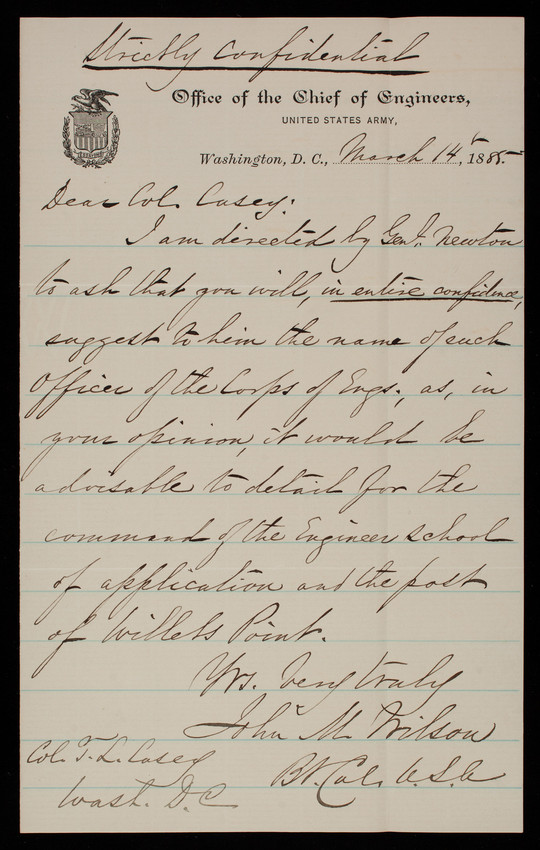 Strictly Confidential
Office of the Chief of Engineers,
UNITED STATES ARMY,
Washington, D. C., March 14th, 1885.
Dear Col. Casey:
I am directed by Genl. Newton
to ask that you will, in entire confidence,
suggest to him the name of such
Officer of the Corps of Engs., as, in
your opinion, it would be
advisable to detail for the
command of the Engineer school
of application and the post
of Willets Point.
Yrs. very truly
John M. Wilson
Bt. Col. U.S.A
Col. T. L. Casey
Wash. D.C